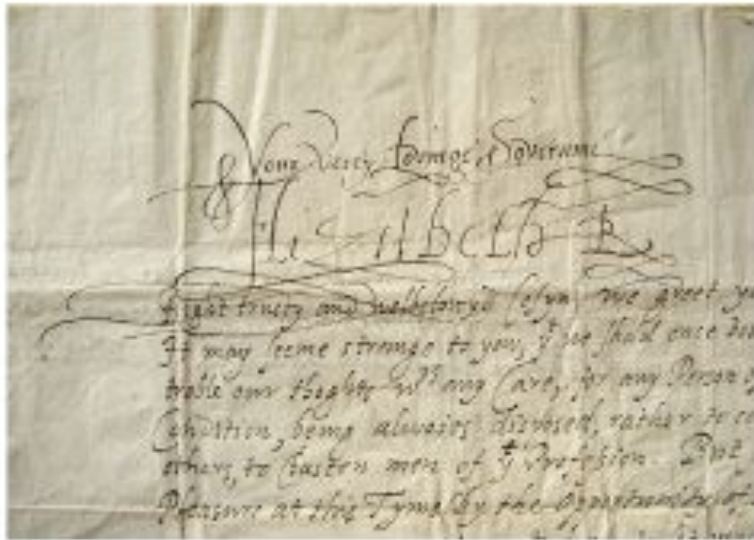 Your very loving Soveraine
Elizabeth R
Right trusty and welbeloved Cosyn we greet yo
It may seeme strange to you, yt we should once dis
troble our thoghts wth any Care, for any Person
Condition, being alwaies disposed, rather to
others, to Chasten men of yt Profession. But
Pleasure at this Tyme, by the opportunity